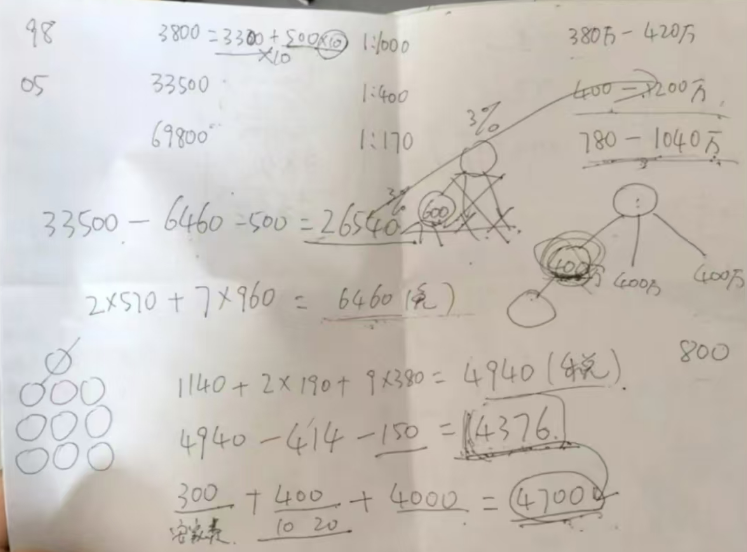 98 3800 = 3300 + 500×10 1:1000 380万 - 420万
×10
05 33500 1:400 400 - 1200万
69800 1:170 3% 780 - 1040万
3%
33500 - 6460 - 500 = 26540 600
400万 400万 400万
2×570 + 7×960 = 6460 (税)
800
1140 + 2×190 + 9×380 = 4940 (税)
4940 - 414 - 150 = 4376
300 + 400 + 4000 = 4700
10 20